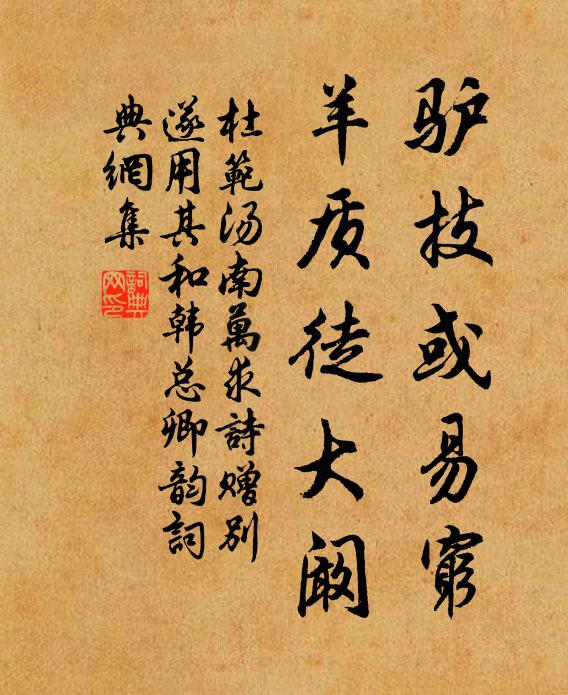 驴技或易窮
羊质徒大阚
杜範汤南萬求詩赠别
遂用其和韩总卿韵詞
典網集
詞典網印